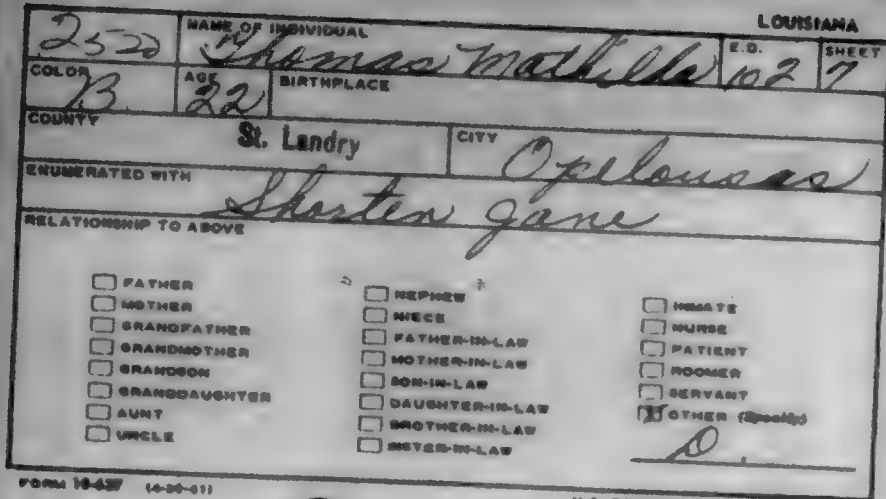 LOUISIANA
NAME OF INDIVIDUAL
E.D.
SHEET
Thomas Mathilda
102
7
COLOR
AGE
BIRTHPLACE
B.
22
COUNTY
St. Landry
CITY
Opelousas
ENUMERATED WITH
Shorten Jane
RELATIONSHIP TO ABOVE
FATHER
MOTHER
GRANDFATHER
GRANDMOTHER
GRANDSON
GRANDDAUGHTER
AUNT
UNCLE
NEPHEW
NIECE
FATHER-IN-LAW
MOTHER-IN-LAW
SON-IN-LAW
DAUGHTER-IN-LAW
BROTHER-IN-LAW
SISTER-IN-LAW
INMATE
NURSE
PATIENT
ROOMER
SERVANT
OTHER (Specify)
D.
FORM